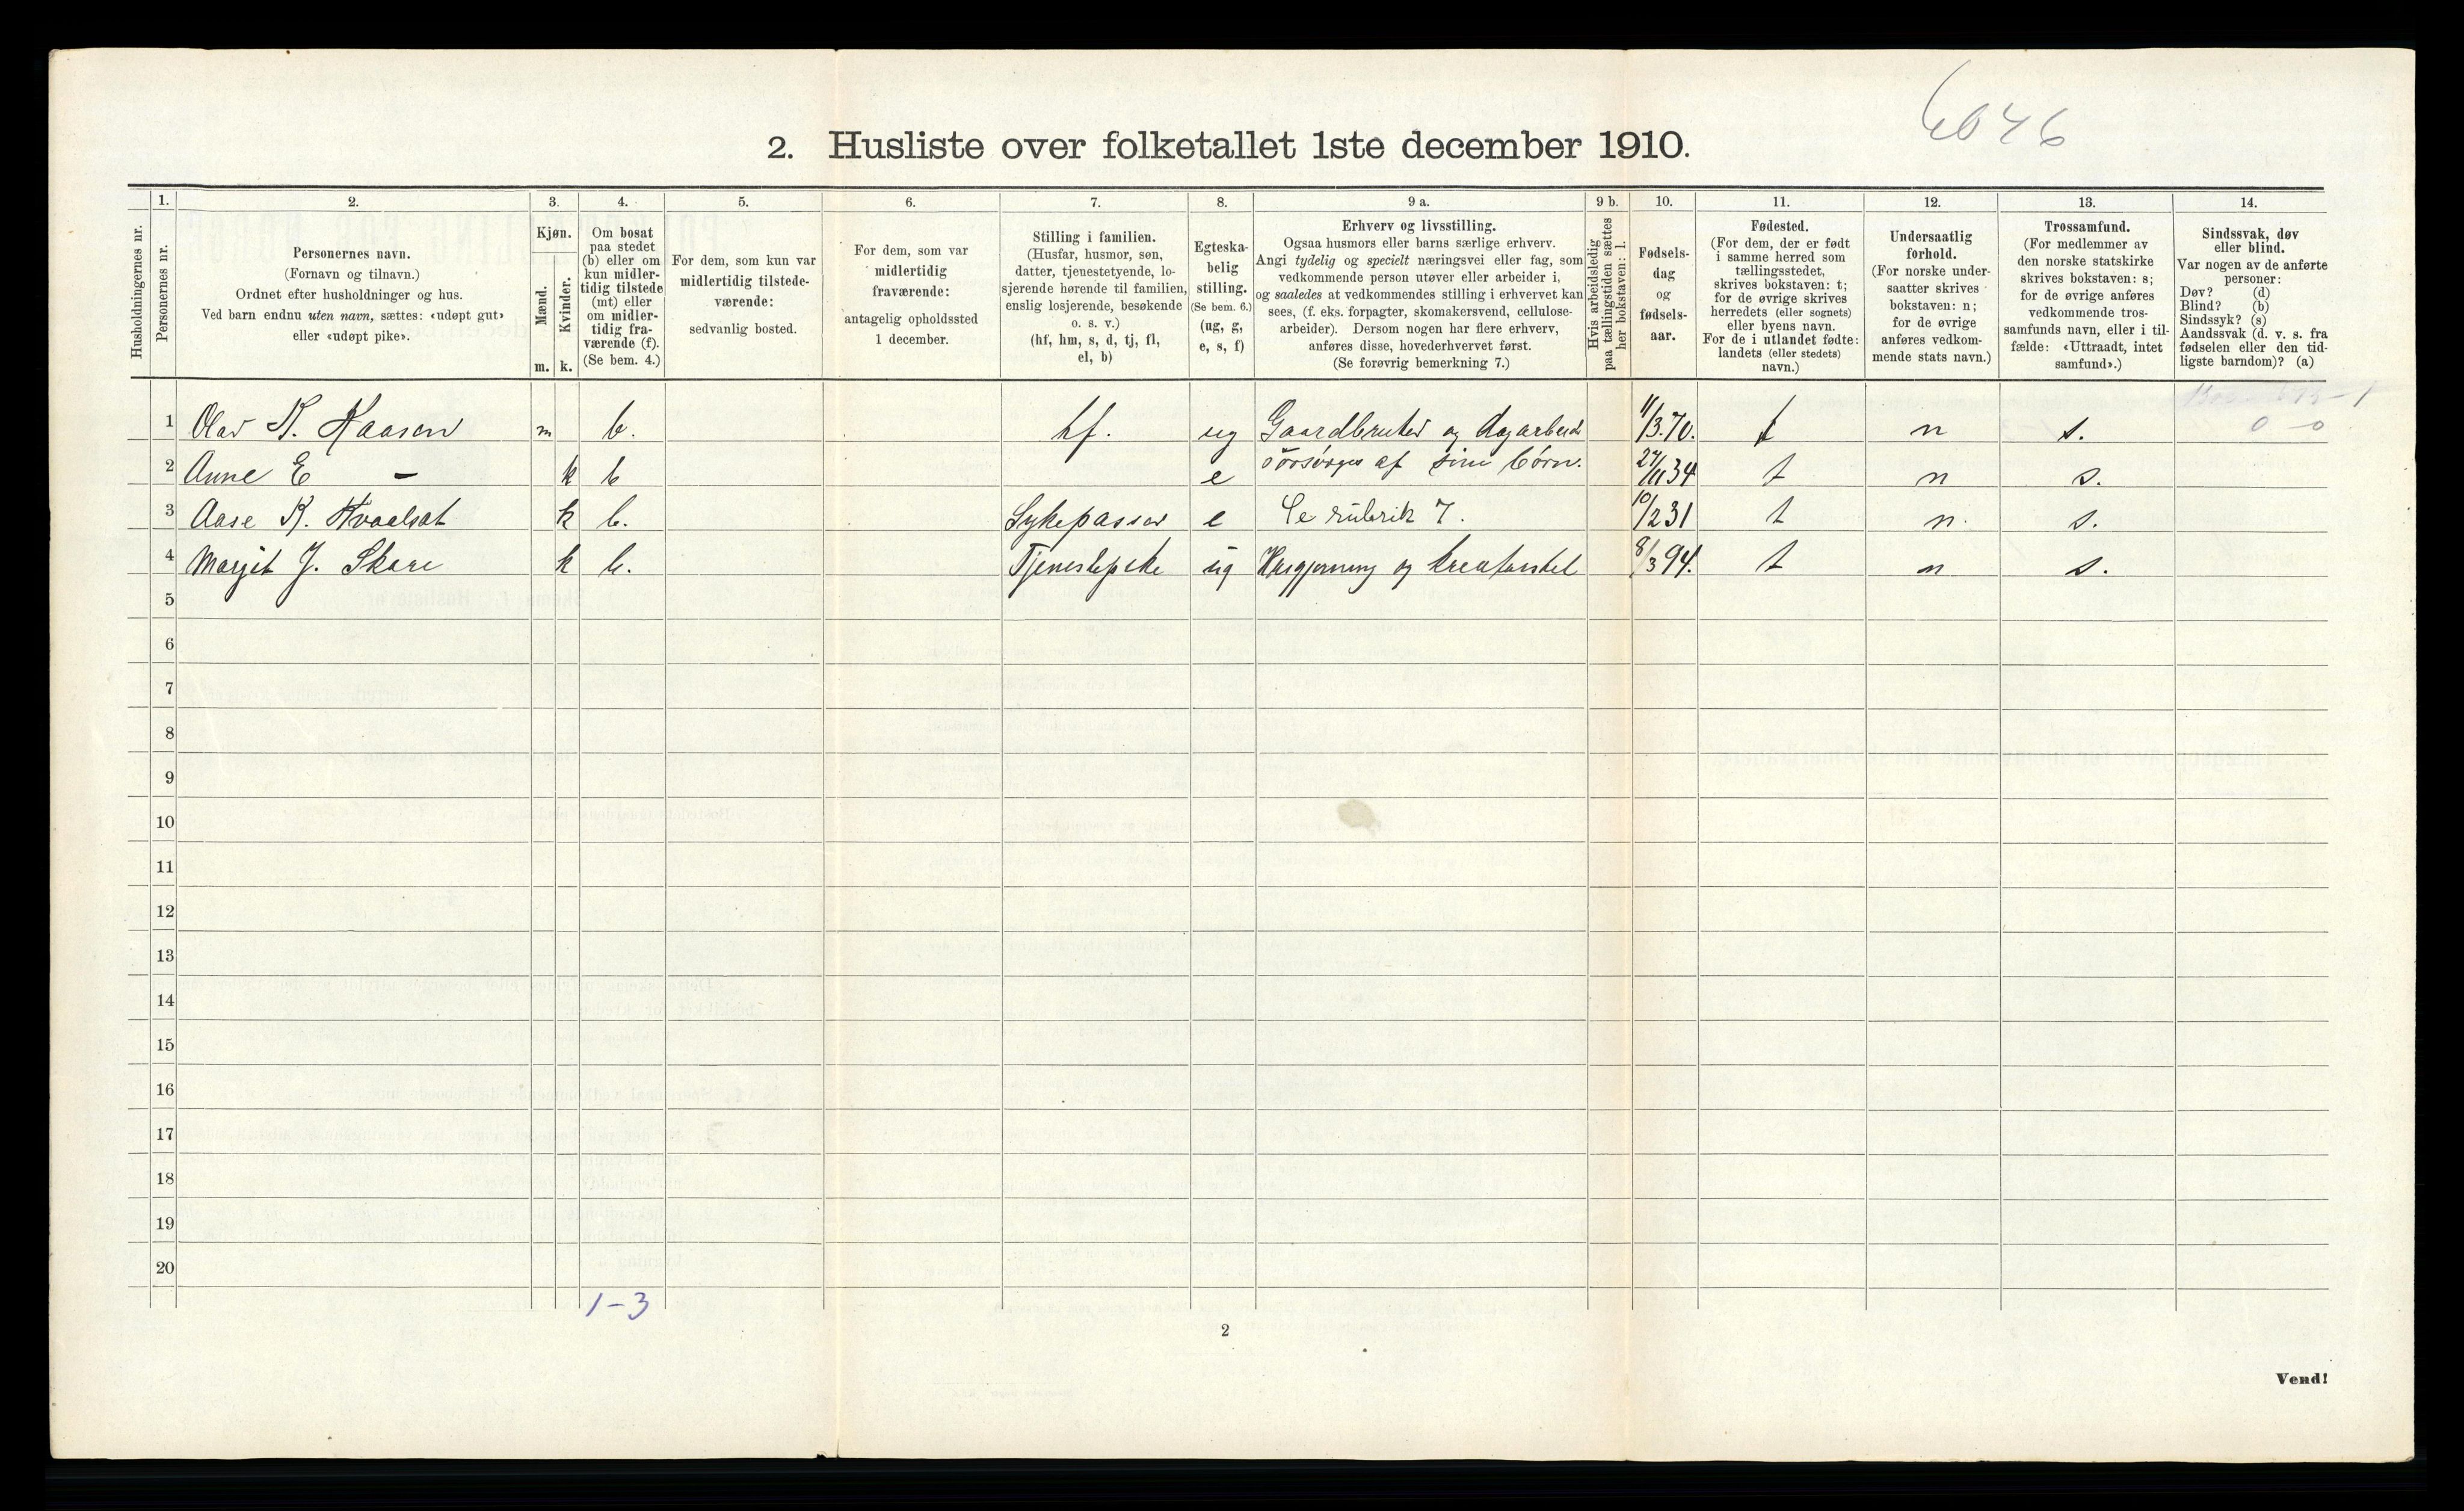 6046
2. Husliste over folketallet 1ste december 1910.
Husholdningernes nr.
1. Personernes nr.
2. Personernes navn.
(Fornavn og tilnavn.)
Ordnet efter husholdninger og hus.
Ved barn endnu uten navn, sættes: «udøpt gut»
eller «udøpt pike».
3. Kjøn.
Mænd. Kvinder.
m. k.
4. Om bosat
paa stedet
(b) eller om
kun midler-
tidig tilstede
(mt) eller
om midler-
tidig fra-
værende (f).
(Se bem. 4.)
5. For dem, som kun var
midlertidig tilstede-
værende:
sedvanlig bosted.
6. For dem, som var
midlertidig
fraværende:
antagelig opholdssted
1 december.
7. Stilling i familien.
(Husfar, husmor, søn,
datter, tjenestetyende, lo-
sjerende hørende til familien,
enslig losjerende, besøkende
o. s. v.)
(hf, hm, s, d, tj, fl,
el, b)
8. Egteska-
belig
stilling.
(Se bem. 6.)
(ug, g,
e, s, f)
9 a. Erhverv og livsstilling.
Ogsaa husmors eller barns særlige erhverv.
Angi tydelig og specielt næringsvei eller fag, som
vedkommende person utøver eller arbeider i,
og saaledes at vedkommendes stilling i erhvervet kan
sees, (f. eks. forpagter, skomakersvend, cellulose-
arbeider). Dersom nogen har flere erhverv,
anføres disse, hovederhvervet først.
(Se forøvrig bemerkning 7.)
9 b. Hvis arbeidsledig
paa tællingstiden sættes
her bokstaven: l.
10. Fødsels-
dag
og
fødsels-
aar.
11. Fødested.
(For dem, der er født
i samme herred som
tællingsstedet,
skrives bokstaven: t;
for de øvrige skrives
herredets (eller sognets)
eller byens navn.
For de i utlandet fødte:
landets (eller stedets)
navn.)
12. Undersaatlig
forhold.
(For norske under-
saatter skrives
bokstaven: n;
for de øvrige
anføres vedkom-
mende stats navn.)
13. Trossamfund.
(For medlemmer av
den norske statskirke
skrives bokstaven: s;
for de øvrige anføres
vedkommende tros-
samfunds navn, eller i til-
fælde: «Uttraadt, intet
samfund».)
14. Sindssvak, døv
eller blind.
Var nogen av de anførte
personer:
Døv? (d)
Blind? (b)
Sindssyk? (s)
Aandssvak (d. v. s. fra
fødselen eller den tid-
ligste barndom)? (a)
0 - 0
1 Olav K. Haasen m b. hf. ug Gaardbruker og dagarbeid 11/3.70. t n s.
2 Anne E — k b e forsørges af sine børn. 27/11 34 t n s.
3 Aase K. Kvaalsat k b. Sykepasser e Se rubrik 7. 10/2 31 t n. s.
4 Margit J. Skare k b. Tjenestepike ug Husgjerning og kreaturstel 8/3 94. t n s.
5
6
7
8
9
10
11
12
13
14
15
16
17
18
19
20
1-3
2
Vend!